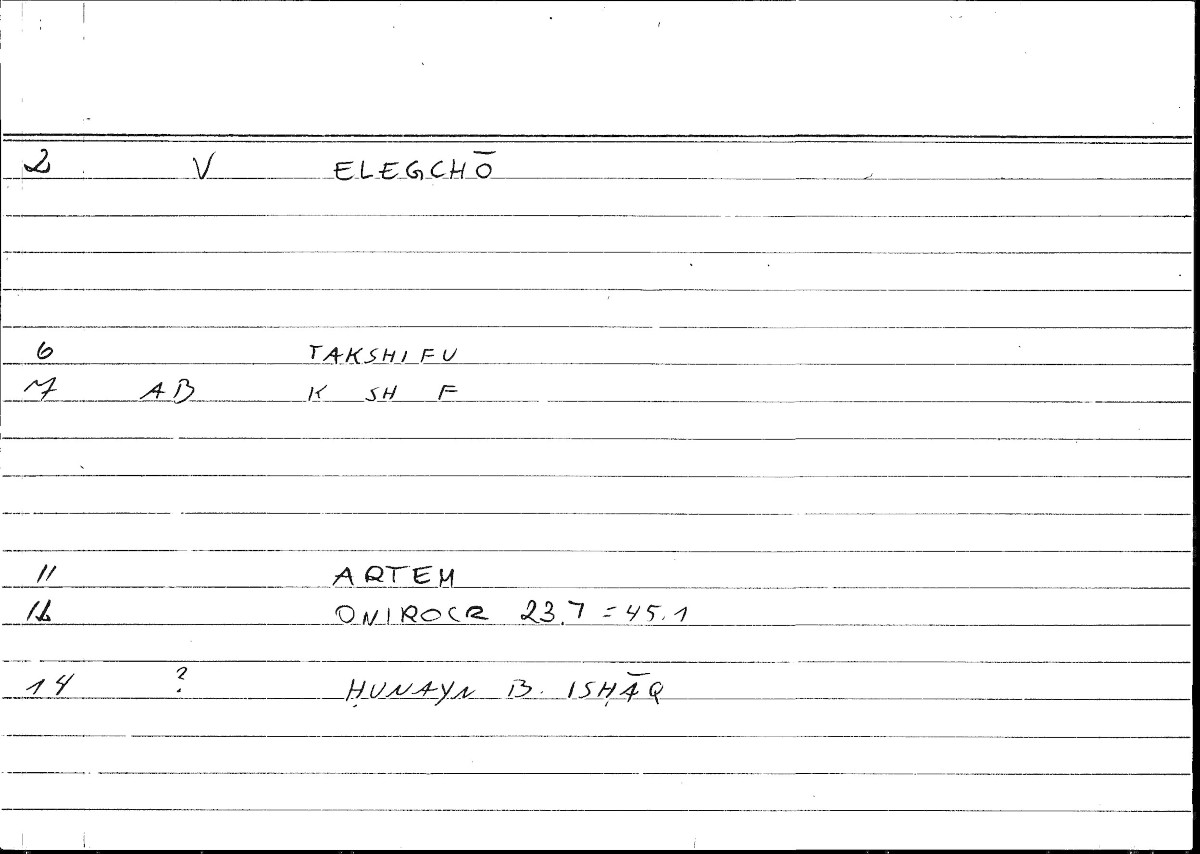 2 V ELEGCHŌ
6 TAKSHIFU
7 AB K SH F
11 ARTEM
12 ONIROCR 23.7 = 45.1
14 ? ḤUNAYN B. ISḤĀQ